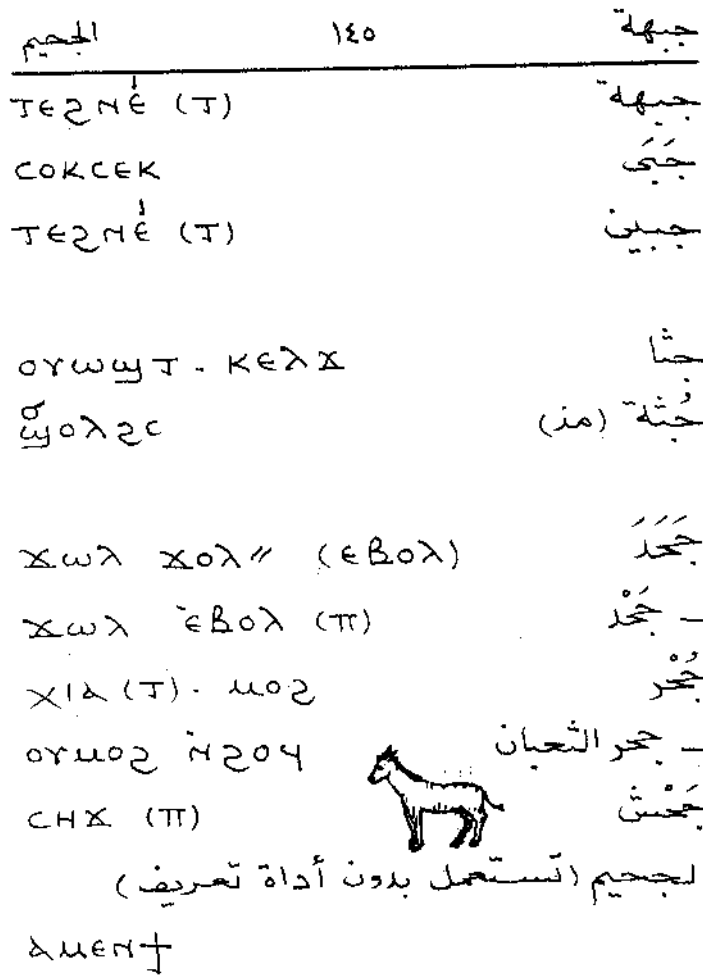 جبهة ١٤٥ الجحيم
جبهة ⲧⲉϩⲛⲉ̀ (ⲧ)
جَبَى ⲥⲟⲕⲥⲉⲕ
جبين ⲧⲉϩⲛⲉ̀ (ⲧ)
جثا ⲟⲩⲱϣⲧ - ⲕⲉⲗϫ
جُثة (مذ) ϣⲟⲗϩⲥ
جَحَدَ ϫⲱⲗ ϫⲟⲗ〃 (ⲉⲃⲟⲗ)
ـ جَحْد ϫⲱⲗ ⲉ̀ⲃⲟⲗ (ⲡ)
جُحْر ⲭⲓⲁ (ⲧ) - ⲙⲟϩ
ـ جحر الثعبان ⲟⲩⲙⲟϩ ⲛ̀ϩⲟϥ
جَحْش ⲥⲏϫ (ⲡ)
لجحيم (تستعمل بدون أداة تعريف)
ⲁⲙⲉⲛϯ